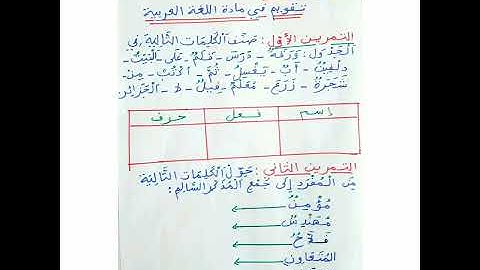 تقويم في مادة اللغة العربية
التمرين الأول: صنف الكلمات التالية في
الجدول: ورقة - درس - قلم - على - البيت -
أب - يغسل - ثم - أكتب - من -
شجرة - زرع - معلم - فيل - الجزائر.
إسم
فعل
حرف
التمرين الثاني: حول الكلمات التالية
من المفرد إلى جمع المذكر السالم:
مؤمن
مهندس
فلاح
المتعاون